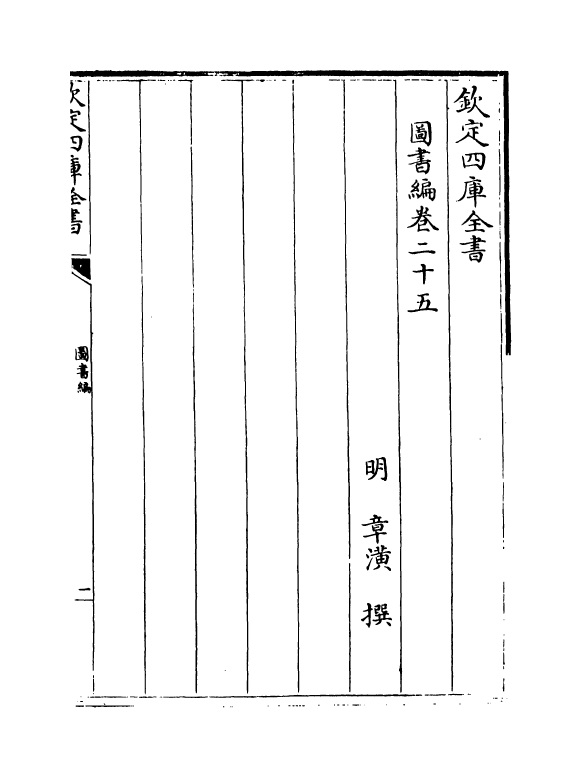 欽定四庫全書
圖書編卷二十五
明 章潢 撰
欽定四庫全書
圖書編
二